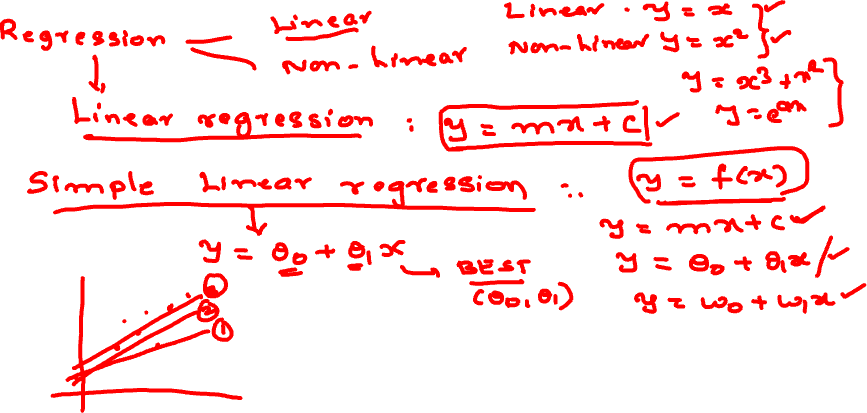 Regression
Linear
Non-Linear
Linear . y = x ✓
Non-Linear y = x² ✓
y = x³ + x²
y = e^ax
Linear regression : y = mx + c ✓
Simple Linear regression :. y = f(x)
y = mx + c ✓
y = θ₀ + θ₁x ✓
y = w₀ + w₁x ✓
y = θ₀ + θ₁x → BEST
(θ₀, θ₁)
②
①